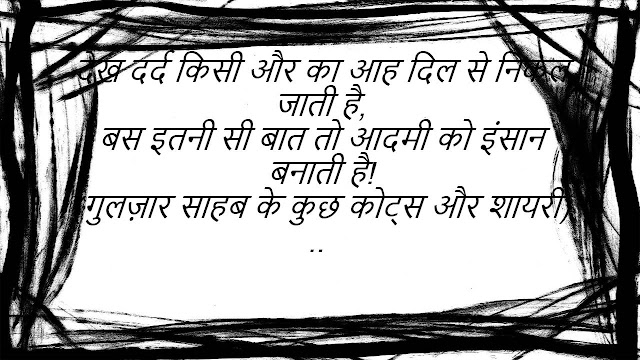 देख दर्द किसी और का आह दिल से निकल
जाती है,
बस इतनी सी बात तो आदमी को इंसान
बनाती है!
(गुलज़ार साहब के कुछ कोट्स और शायरी)
..